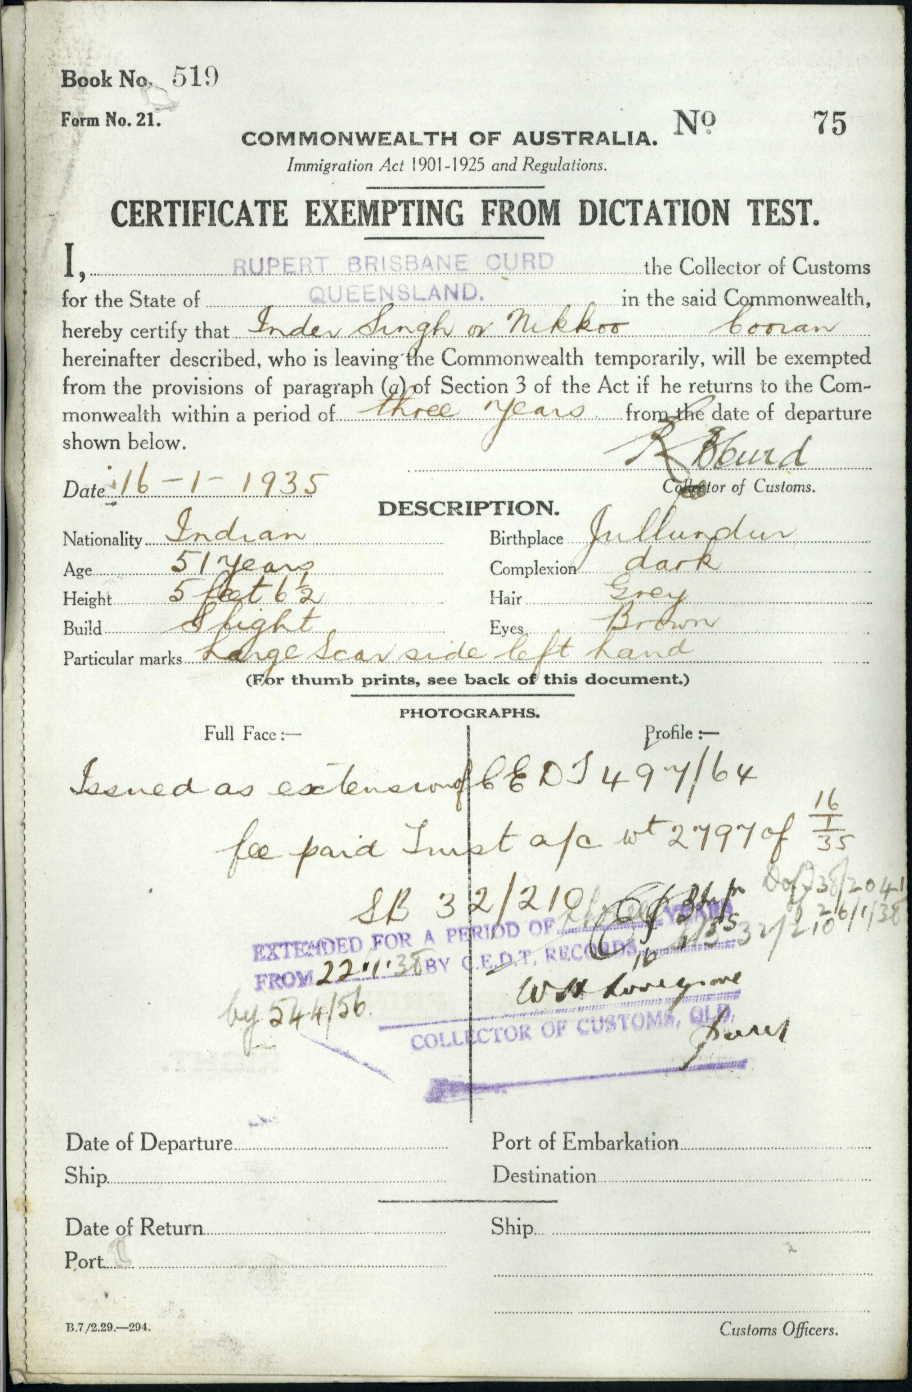 Book No. 519
Form No. 21.
COMMONWEALTH OF AUSTRALIA. No 75
Immigration Act 1901-1925 and Regulations.
CERTIFICATE EXEMPTING FROM DICTATION TEST.
I, RUPERT BRISBANE CURD the Collector of Customs
for the State of QUEENSLAND. in the said Commonwealth,
hereby certify that Inder Singh or Nikkoo Cooran
hereinafter described, who is leaving the Commonwealth temporarily, will be exempted
from the provisions of paragraph (a) of Section 3 of the Act if he returns to the Com-
monwealth within a period of three years from the date of departure
shown below.
R B Curd
Date 16-1-1935 Collector of Customs.
DESCRIPTION.
Nationality Indian Birthplace Jullundur
Age 51 years Complexion dark
Height 5 feet 6½ Hair Grey
Build Slight Eyes Brown
Particular marks Large Scar side left hand
(For thumb prints, see back of this document.)
PHOTOGRAPHS.
Full Face:— Profile:—
Issued as extension of CEDT 497/64
fee paid Trust a/c wt 2797 of 16/1/35
SB 32/210
EXTENDED FOR A PERIOD OF three YEARS
FROM 22.1.38 BY C.E.D.T. RECORDS 32/210
by 544/56.
COLLECTOR OF CUSTOMS, QLD.
Date of Departure Port of Embarkation
Ship Destination
Date of Return Ship
Port
B.7/2.29.—294. Customs Officers.